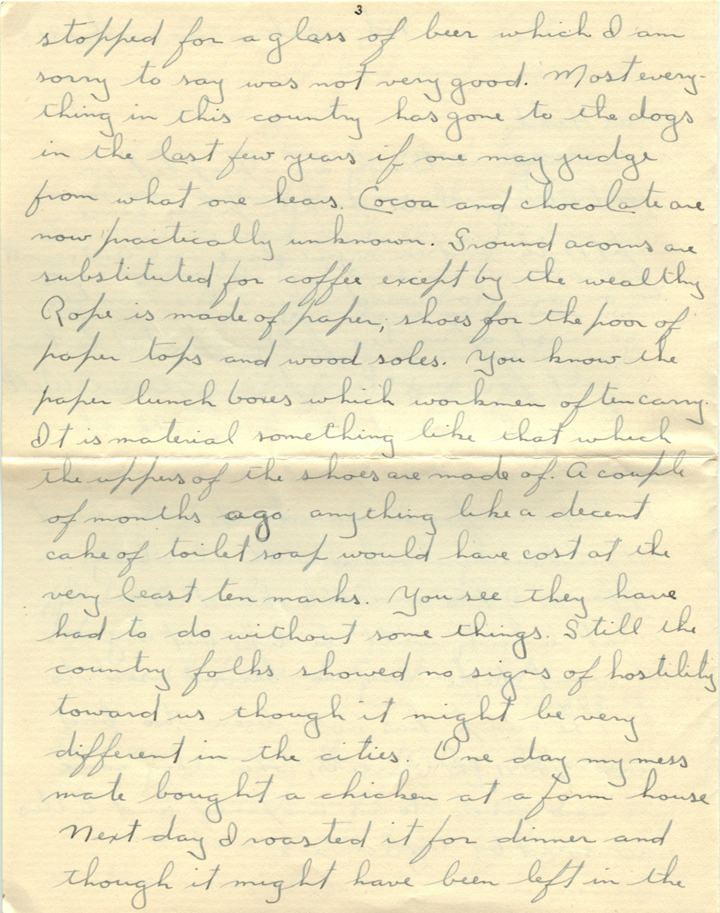 3
stopped for a glass of beer which I am
sorry to say was not very good. Most every-
thing in this country has gone to the dogs
in the last few years if one may judge
from what one hears. Cocoa and chocolate are
now practically unknown. Ground acorns are
substituted for coffee except by the wealthy
Rope is made of paper; shoes for the poor of
paper tops and wood soles. You know the
paper lunch boxes which workmen often carry.
It is material something like that which
the uppers of the shoes are made of. A couple
of months ago anything like a decent
cake of toilet soap would have cost at the
very least ten marks. You see they have
had to do without some things. Still the
country folks showed no signs of hostility
toward us though it might be very
different in the cities. One day my mess
mate bought a chicken at a farm house
Next day I roasted it for dinner and
though it might have been left in the